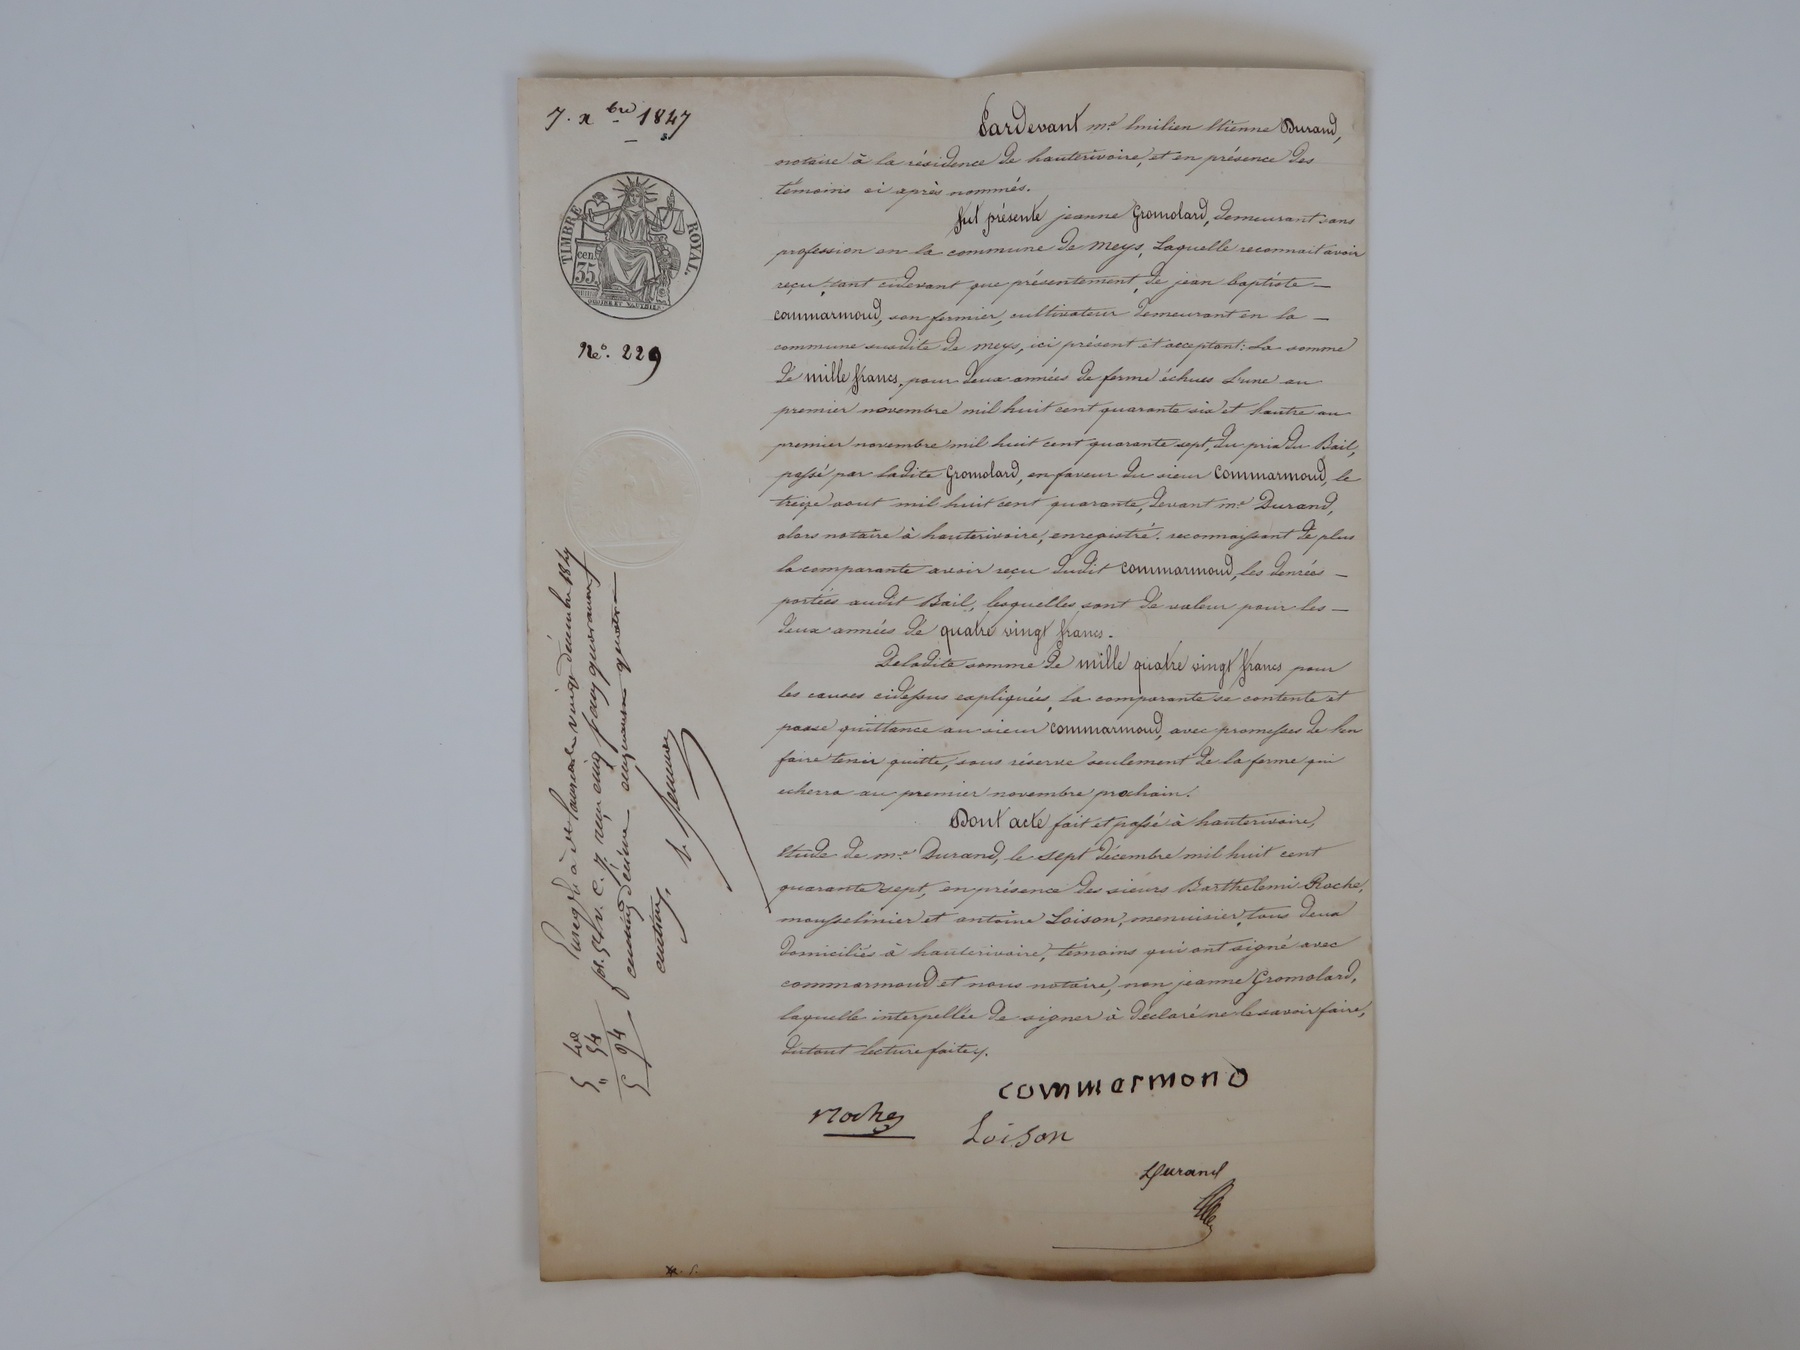 7. xbre 1847
TIMBRE ROYAL.
cen.
35.
No. 229
Pardevant me. Emilien Etienne Durand,
notaire à la résidence de hauterivoire, et en présence des
témoins ci après nommés.
fut présente jeanne Gromolard, demeurant sans
profession en la commune de Meys, Laquelle reconnait avoir
reçu, tant cidevant que présentement, de jean baptiste —
commarmond, son fermier, cultivateur demeurant en la —
commune susdite de meys, ici présent et acceptant: La somme
de mille francs, pour deux années de ferme échues L'une au
premier novembre mil huit cent quarante six et lautre au
premier novembre mil huit cent quarante sept, du prix du Bail,
passé par Ladite Gromolard, en faveur du sieur Commarmond, le
treize aout mil huit cent quarante, devant me. Durand,
alors notaire à hauterivoire, enregistré. reconnaissant de plus
la comparante avoir reçu dudit commarmond, les denrées —
portées audit Bail, lesquelles sont de valeur pour les —
deux années de quatre vingt francs.
Deladite somme de mille quatre vingt francs pour
les causes cidessus expliquées, la comparante se contente et
passe quittance au sieur commarmond, avec promesses de l'en
faire tenir quitte, sous réserve seulement de la ferme qui
echerra au premier novembre prochain.
Dont acte fait et passé à hauterivoire,
Etude de me. Durand, le sept décembre mil huit cent
quarante sept, en présence des sieurs Barthelemi Roche,
mousselinier et antoine Loison, menuisier, tous deux
domiciliés à hauterivoire, témoins qui ont signé avec
commarmond et nous notaire, non jeanne Gromolard,
laquelle interpellée de signer à déclaré ne le savoir faire,
du tout lecture faite.
commermond
Roche
Loison
Durand
Enregistré à St Laurent le vingt décembre 1847
fol. 54 v. c. 7. reçu cinq francs quarante
centimes, décime cinquante quatre
centimes.
5 40
" 54
5 94